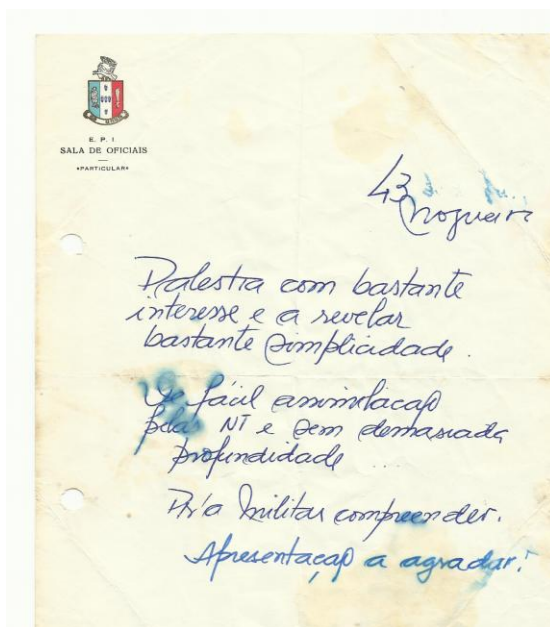 E. P. I
SALA DE OFICIAIS
"PARTICULAR"
43
Nogueira
Palestra com bastante
interesse e a revelar
bastante simplicidade.
De fácil assimilação
pelas NT e sem demasiada
profundidade
P'r'a militar compreender.
Apresentação a agradar!